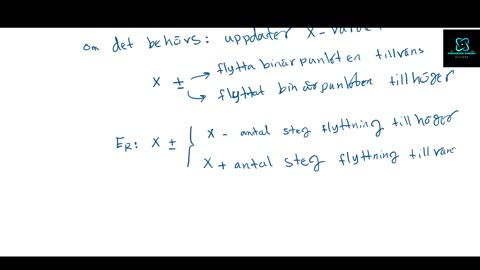 om det behövs: uppdater X-värdet
X ± → flytta binärpunkten till väns
↳ flyttat binärpunkten till höger
ER: X ± { X - antal steg flyttning till höger
X + antal steg flyttning till väns